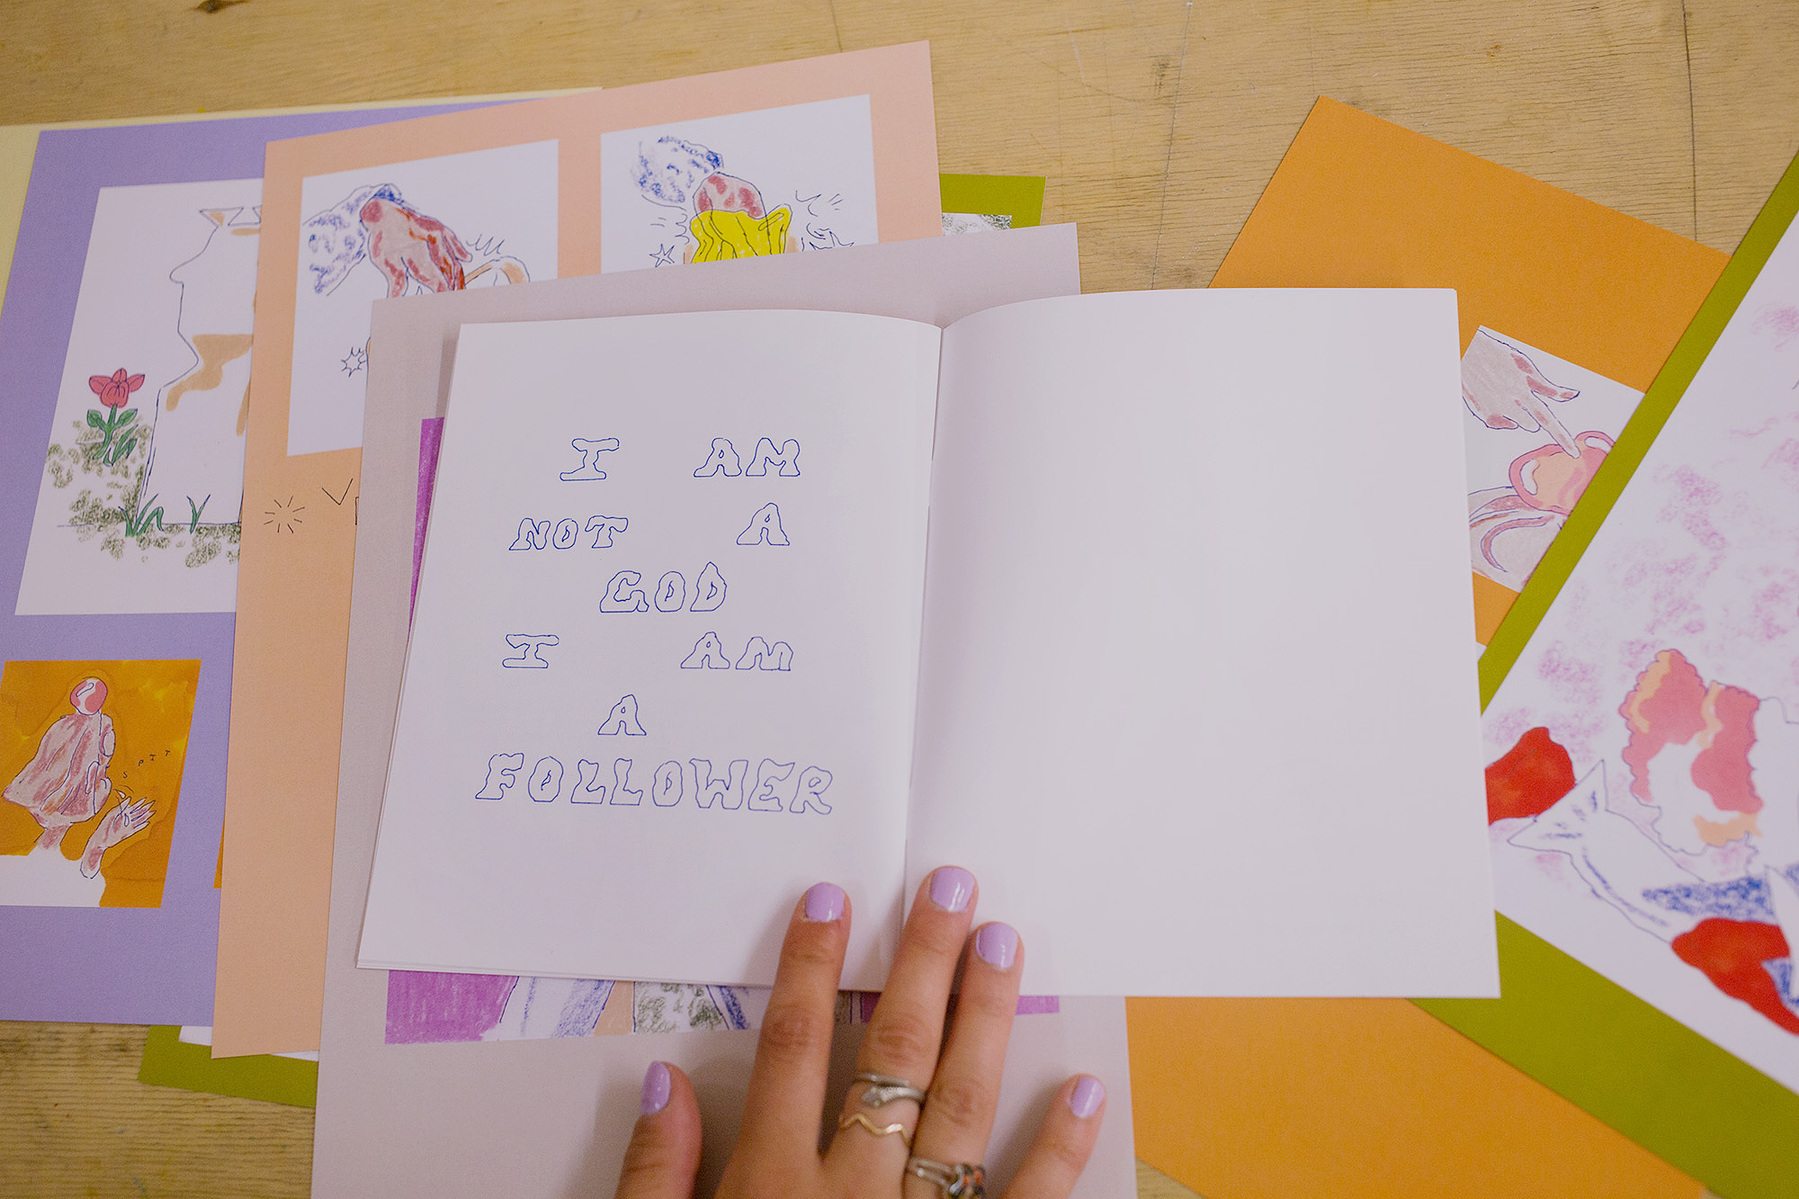 I AM
NOT A
GOD
I AM
A
FOLLOWER
SPIT